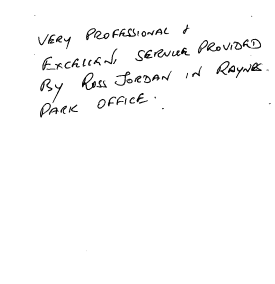 VERY PROFESSIONAL &
EXCELLENT SERVICE PROVIDED
BY ROSS JORDAN IN RAYNES
PARK OFFICE.